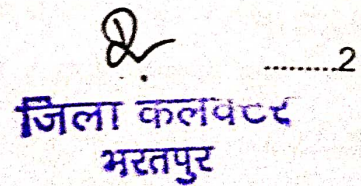 .........2
जिला कलक्टर
भरतपुर